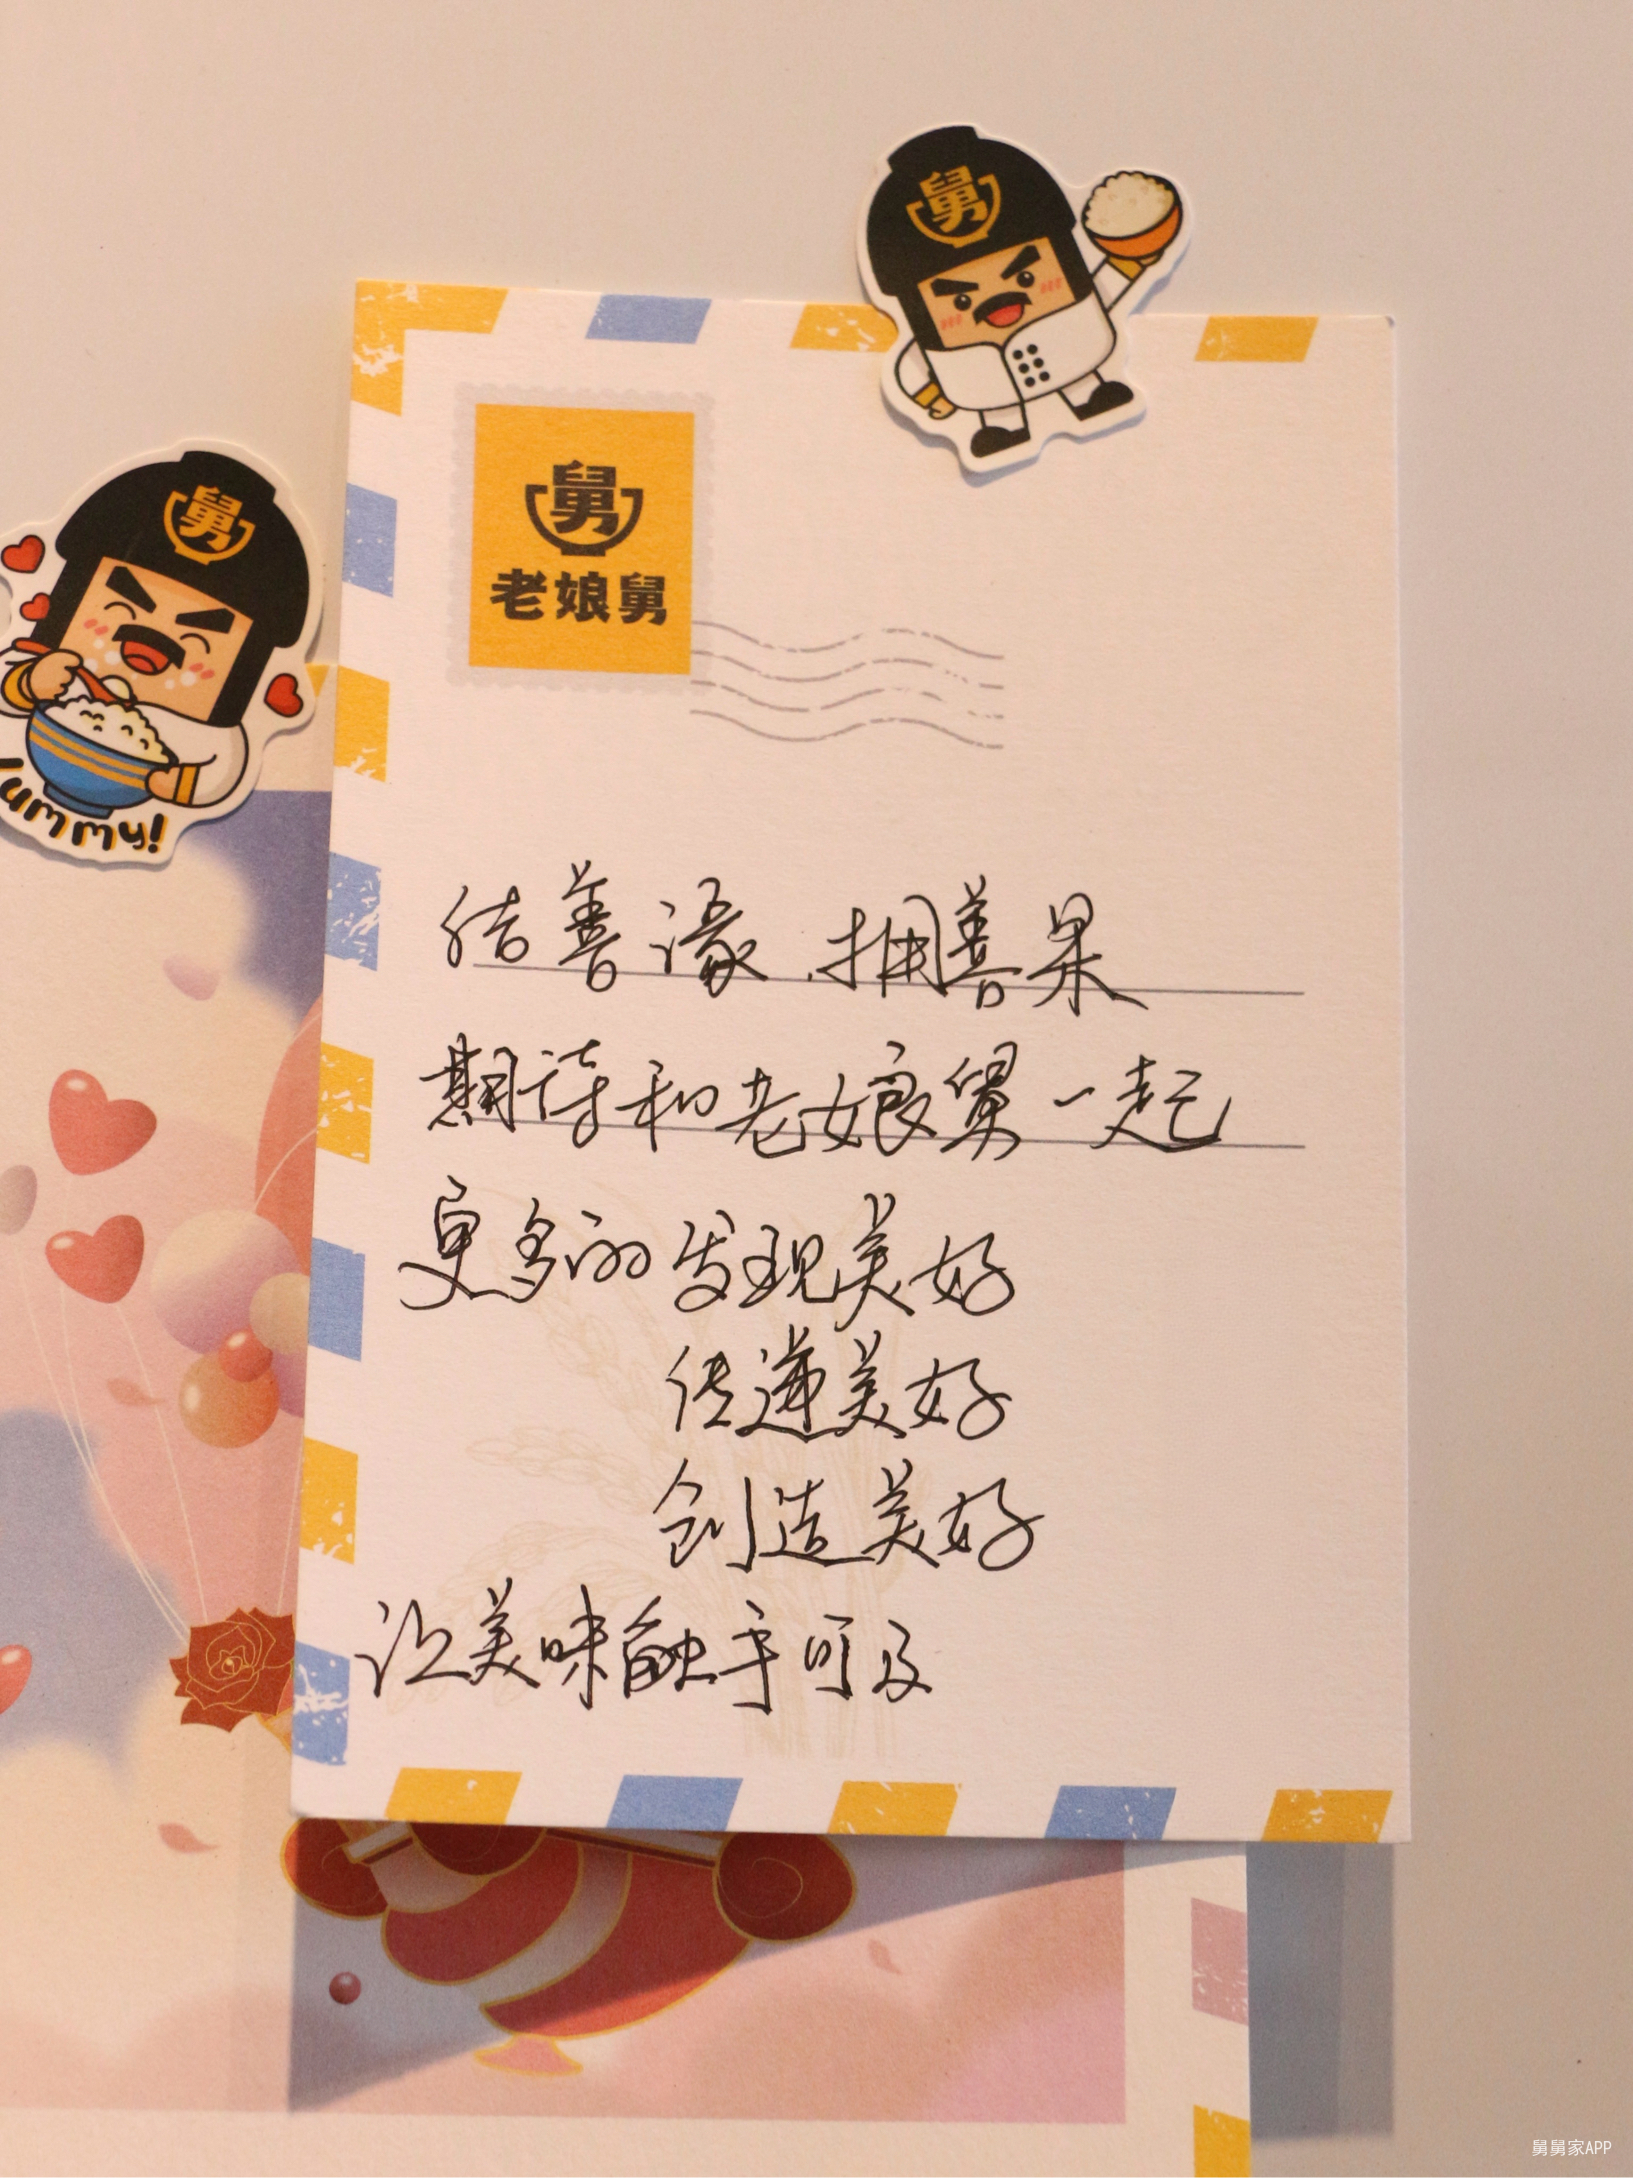 舅
舅
舅
老娘舅
ummy!
结善缘，拥善果
期待和老娘舅一起
更多的发现美好
传递美好
创造美好
让美味触手可及
舅舅家APP